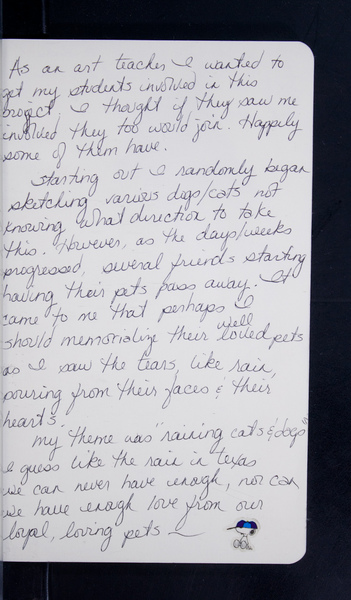 As an art teacher I wanted to
get my students involved in this
project, I thought if they saw me
involved they too would join. Happily
some of them have.
Starting out I randomly began
sketching various dogs/cats not
knowing what direction to take
this. However, as the days/weeks
progressed, several friends starting
having their pets pass away. It
came to me that perhaps I
should memorialize their well loved pets
as I saw the tears, like rain,
pouring from their faces & their
hearts.
My theme was "raining cats & dogs"
I guess like the rain in Texas
we can never have enough, nor can
we have enough love from our
loyal, loving pets ~